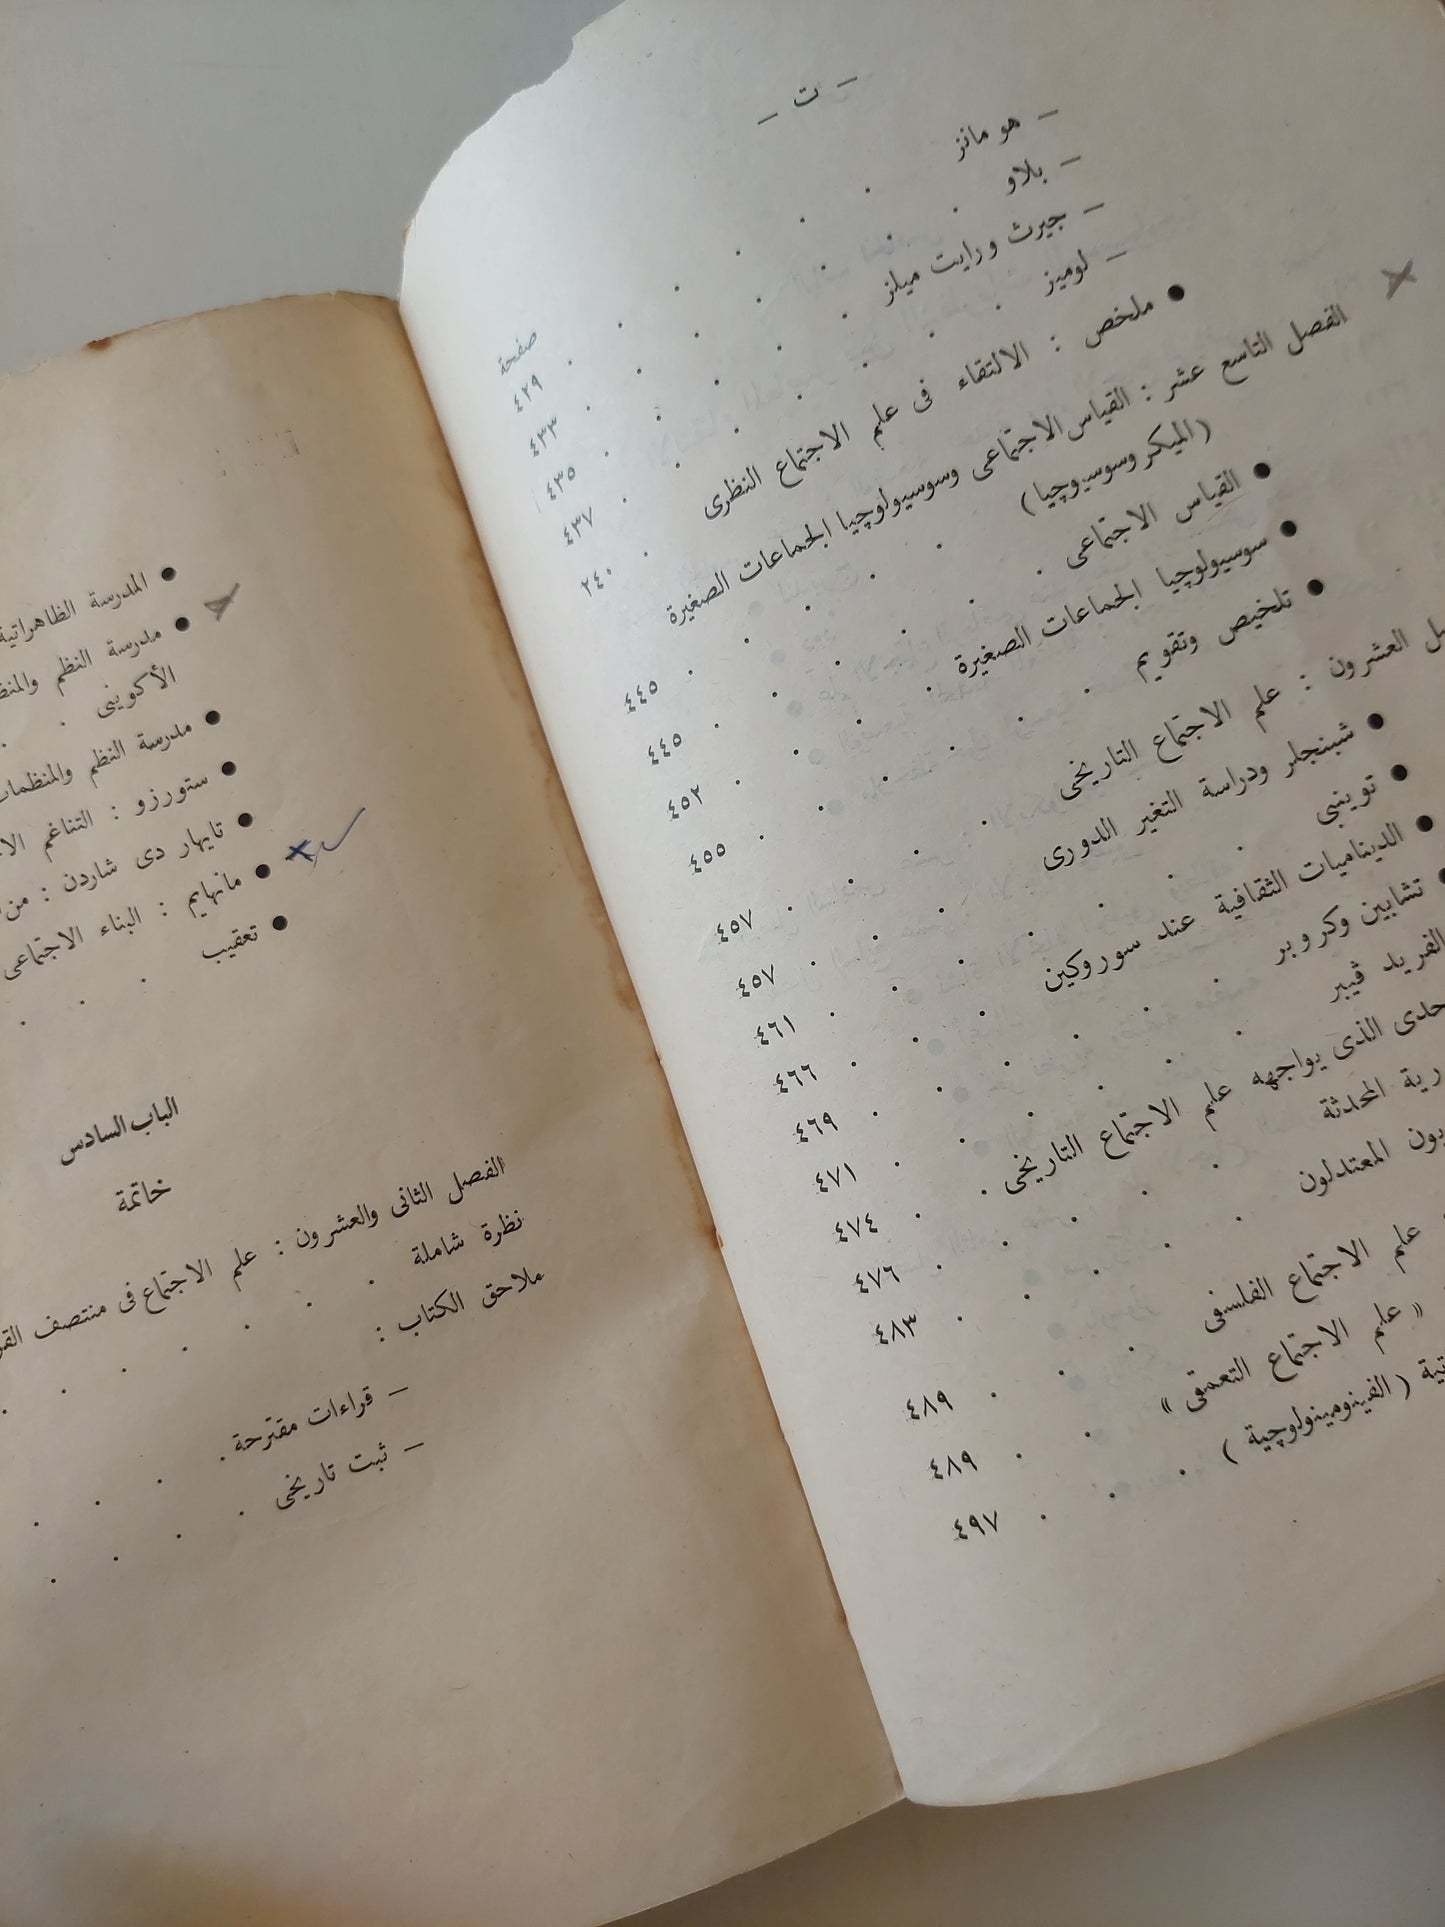 - ت -
صفحة
- هومانز . . . . . . ٤٢٩
- بلاو . . . . . . ٤٣٣
- جيرث ورايت ميلز . . . . . ٤٣٥
- لوميز . . . . . . ٤٣٧
● ملخص : الالتقاء فى علم الاجتماع النظرى . ٢٤٠
الفصل التاسع عشر : القياس الاجتماعى وسوسيولوچيا الجماعات الصغيرة
(الميكروسوسيوچيا) . . . . . ٤٤٥
● القياس الاجتماعى . . . . . ٤٤٥
● سوسيولوچيا الجماعات الصغيرة . . . . ٤٥٢
● تلخيص وتقويم . . . . . . ٤٥٥
العشرون : علم الاجتماع التاريخى . . . . ٤٥٧
● شبنجلر ودراسة التغير الدورى . . . ٤٥٧
● توينبى . . . . . . ٤٦١
● الديناميات الثقافية عند سوروكين . . . ٤٦٦
● تشابين وكروبر . . . . . ٤٦٩
الفريد ڤيبر . . . . . ٤٧١
الذى يواجهه علم الاجتماع التاريخى . . ٤٧٤
المحدثة . . . . . ٤٧٦
المعتدلون . . . . . ٤٨٣
علم الاجتماع الفلسفى . . . ٤٨٩
« علم الاجتماع التعمقى » . . ٤٨٩
( الفينومينولوچية ) . . . ٤٩٧
● المدرسة الظاهراتية
● مدرسة النظم
الأكوينى . .
● مدرسة النظم والمنظمات
● ستورزو : التناغم
● تايهار دى شاردن :
● مانهايم : البناء الاجتماعى
● تعقيب . . .
الباب السادس
خاتمة
الفصل الثانى والعشرون : علم الاجتماع فى منتصف
نظرة شاملة . . . . . .
ملاحق الكتاب :
- قراءات مقترحة . . . .
- ثبت تاريخى . . . .